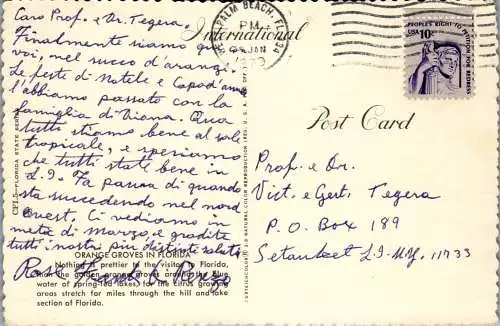 Caro Prof. e Dr. Tegera.
Finalmente siamo qui
voi, nel succo d'arangi.
Le feste di Natale e Capod'anno
l'abbiamo passato con la
famiglia di Diana. Qua
tutti stiamo bene al sole
tropicale, e speriamo
che tutti state bene in
L.I. Fa paura di quando
sta succedendo nel nord
Ovest. Ci vediamo in
metà di Marzo, e gradite
tutti i nostri piu distinti saluti
Rose Frank &
ORANGE GROVES IN FLORIDA
Nothing is prettier to the visitor to Florida,
than the golden orange groves and the blue
water of spring-fed lakes for the citrus growing
areas stretch for miles through the hill and lake
section of Florida.
International
Post Card
PALM BEACH, FL
PM
JAN
1979
PEOPLE'S RIGHT TO PETITION FOR REDRESS
USA 10c
Prof. e Dr.
Vict. e Gert. Tegera
P.O. BOX 189
Setauket L.I. N.Y. 11733
FLORIDA STATE SERIES